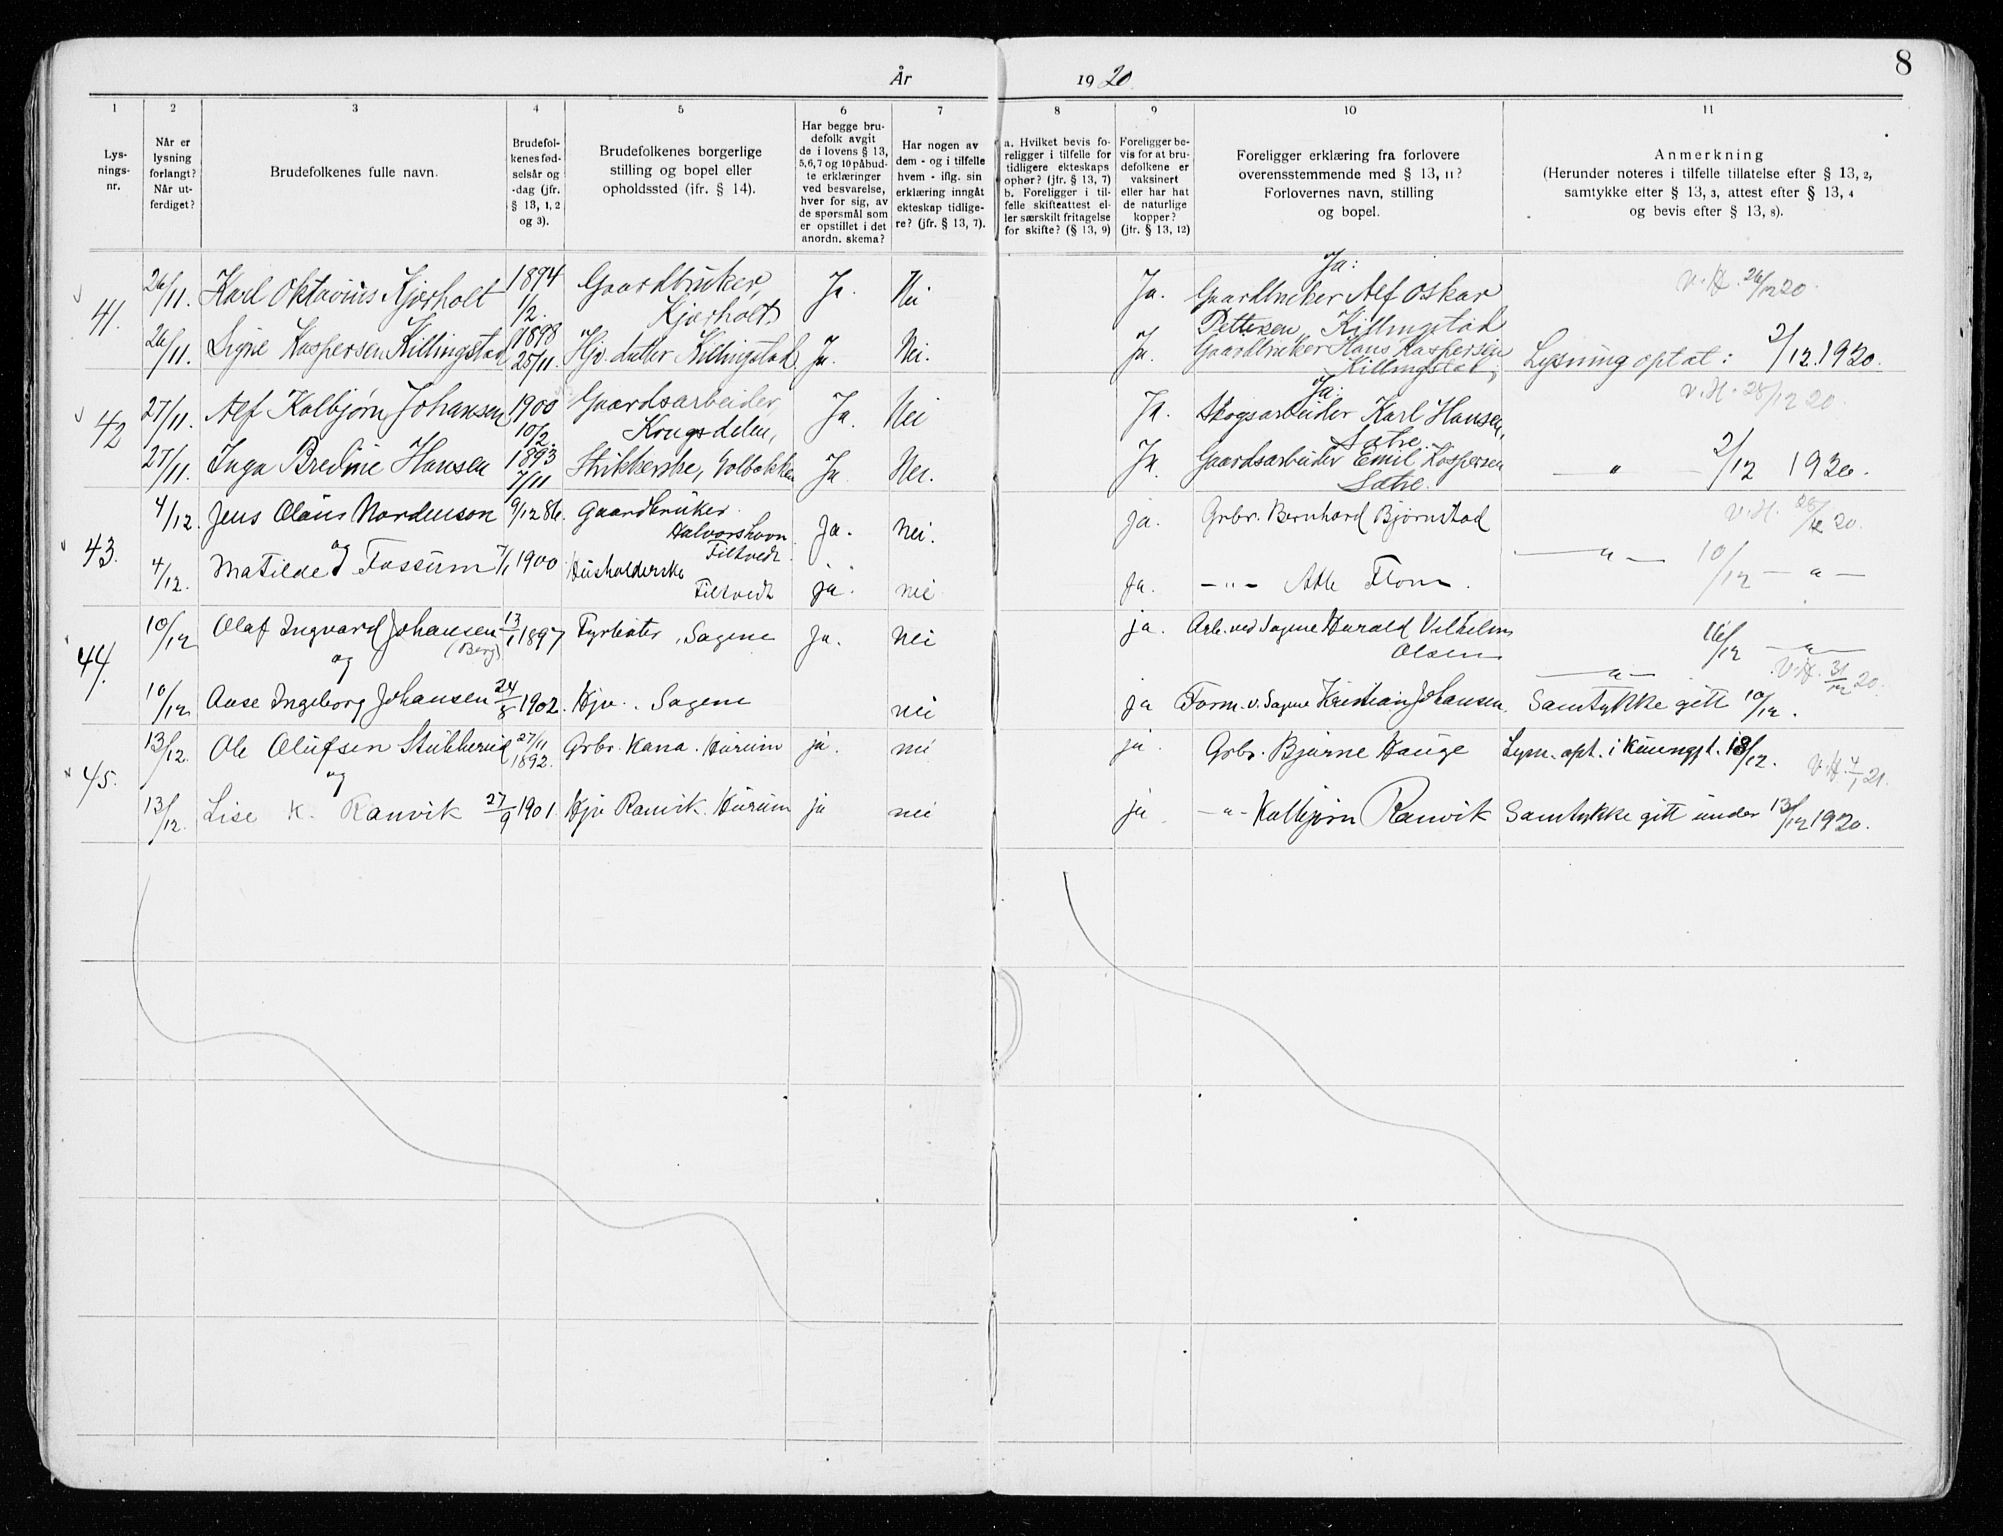 År 1920.
8
1 2 3 4 5 6 7 8 9 10 11
Lys-
nings-
nr.
Når er
lysning
forlangt?
Når ut-
ferdiget?
Brudefolkenes fulle navn.
Brudefol-
kenes fød-
selsår og
-dag (jfr.
§ 13, 1, 2
og 3).
Brudefolkenes borgerlige
stilling og bopel eller
opholdssted (ifr. § 14).
Har begge bru-
defolk avgit
de i lovens § 13,
5,6,7 og 10 påbud-
te erklæringer
ved besvarelse,
hver for sig, av
de spørsmål som
er opstillet i det
anordn. skema?
Har nogen av
dem - og i tilfelle
hvem - iflg. sin
erklæring inngåt
ekteskap tidlige-
re? (jfr. § 13, 7).
a. Hvilket bevis fo-
religger i tilfelle for
tidligere ekteskaps
ophør? (jfr. § 13, 7)
b. Foreligger i til-
felle skifteattest el-
ler særskilt fritagelse
for skifte? (§ 13, 9)
Foreligger be-
vis for at bru-
defolkene er
vaksinert
eller har hat
de naturlige
kopper?
(jfr. § 13, 12)
Foreligger erklæring fra forlovere
overensstemmende med § 13, 11?
Forlovernes navn, stilling
og bopel.
Anmerkning
(Herunder noteres i tilfelle tillatelse efter § 13, 2,
samtykke efter § 13, 3, attest efter § 13, 4
og bevis efter § 13, 8).
41. 26/11. Karl Oktavius Kjørholt 1894 1/2. Gaardbruker, Kjørholt. Ja. Nei Ja. Ja: Gaardbruker Alf Oskar Pettersen, Killingstad V.H. 26/12 20.
26/11. Signe Kaspersen Killingstad 1898 25/11. Hjv. datter Killingstad Ja. Nei. Ja. Gaardbruker Hans Kaspersen Killingstad, Lysning optat: 2/12.1920.
42 27/11. Alf Kolbjørn Johansen 1900 10/2. Gaardsarbeider, Krogsdelen, Ja. Nei Ja. Ja: Skogsarbeider Karl Hansen, Sætre. V.H. 28/12 20.
27/11. Inga Bredine Hansen 1893 1/11 Strikkerske, Ja Nei. Ja Gaardsarbeider Emil Kaspersen Sætre. — " — 2/12 1920.
43. 4/12. Jens Olaus Nordenson 9/12 86. Gaardbruker. Halvorshavn Filtvedt. Ja. nei. ja. Grbr. Bernhard Bjørnstad V.H. 28/12 20.
og
4/12. Matilde Fossum 7/1 1900 Husholderske Filtvedt ja. nei ja. — " — Atle Flom. — " — 10/12 — " —
44. 10/12 Olaf Ingvard Johansen (Berg) 13/1 1897 Fyrbøter, Sagene Ja. nei ja. Arb. ved Sagene Harald Vilhelm Olsen — " — 16/12 — " —
og
V.H. 31/12 20.
10/12 Aase Ingeborg Johansen 24/8 1902. Hjv. . Sagene nei ja Form. v. Sagene Kristian Johansen. Samtykke gitt 10/12.
45. 13/12. Ole Olufsen Stubberud 27/11 1892. Grbr. Kana. Hurum ja. nei ja. Grbr. Bjarne Hauge Lysn. opt. i 18/12. V.H. 7/1 21.
og
13/12. Lise K. Ranvik 27/9 1901. Hjv Ranvik. Hurum ja nei ja. — " — Kolbjørn Ranvik Samtykke gitt under 13/12 1920.